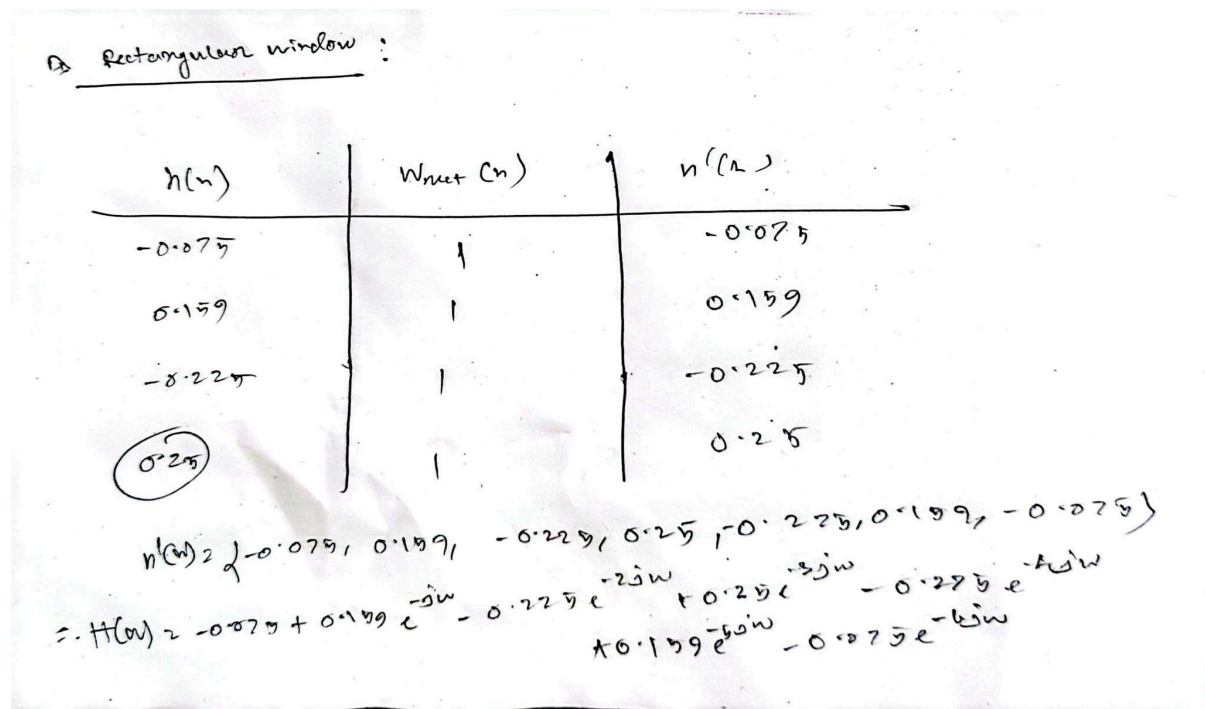 Rectangular window :
h(n) Wrect (n) h'(n)
-0.075 1 -0.075
0.159 1 0.159
-0.225 1 -0.225
0.25 1 0.25
h'(n) = {-0.075, 0.159, -0.225, 0.25, -0.225, 0.159, -0.075}
∴ H(ω) = -0.075 + 0.159 e^{-jω} - 0.225 e^{-2jω} + 0.25 e^{-3jω} - 0.225 e^{-4jω}
+0.159 e^{-5jω} - 0.075 e^{-6jω}